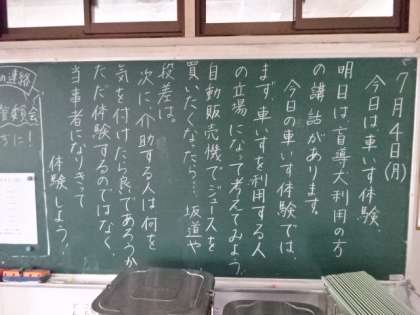 7月4日(月)
今日は車いす体験、
明日は盲導犬利用の方
の講話があります。
今日の車いす体験では、
まず、車いすを利用する人
の立場になって考えてみよう。
自動販売機でジュースを
買いたくなったら…坂道や
段差は。
次に、介助する人は何を
気を付けたら良であろうか
ただ体験するのではなく、
当事者になりきって
体験しよう。
連絡